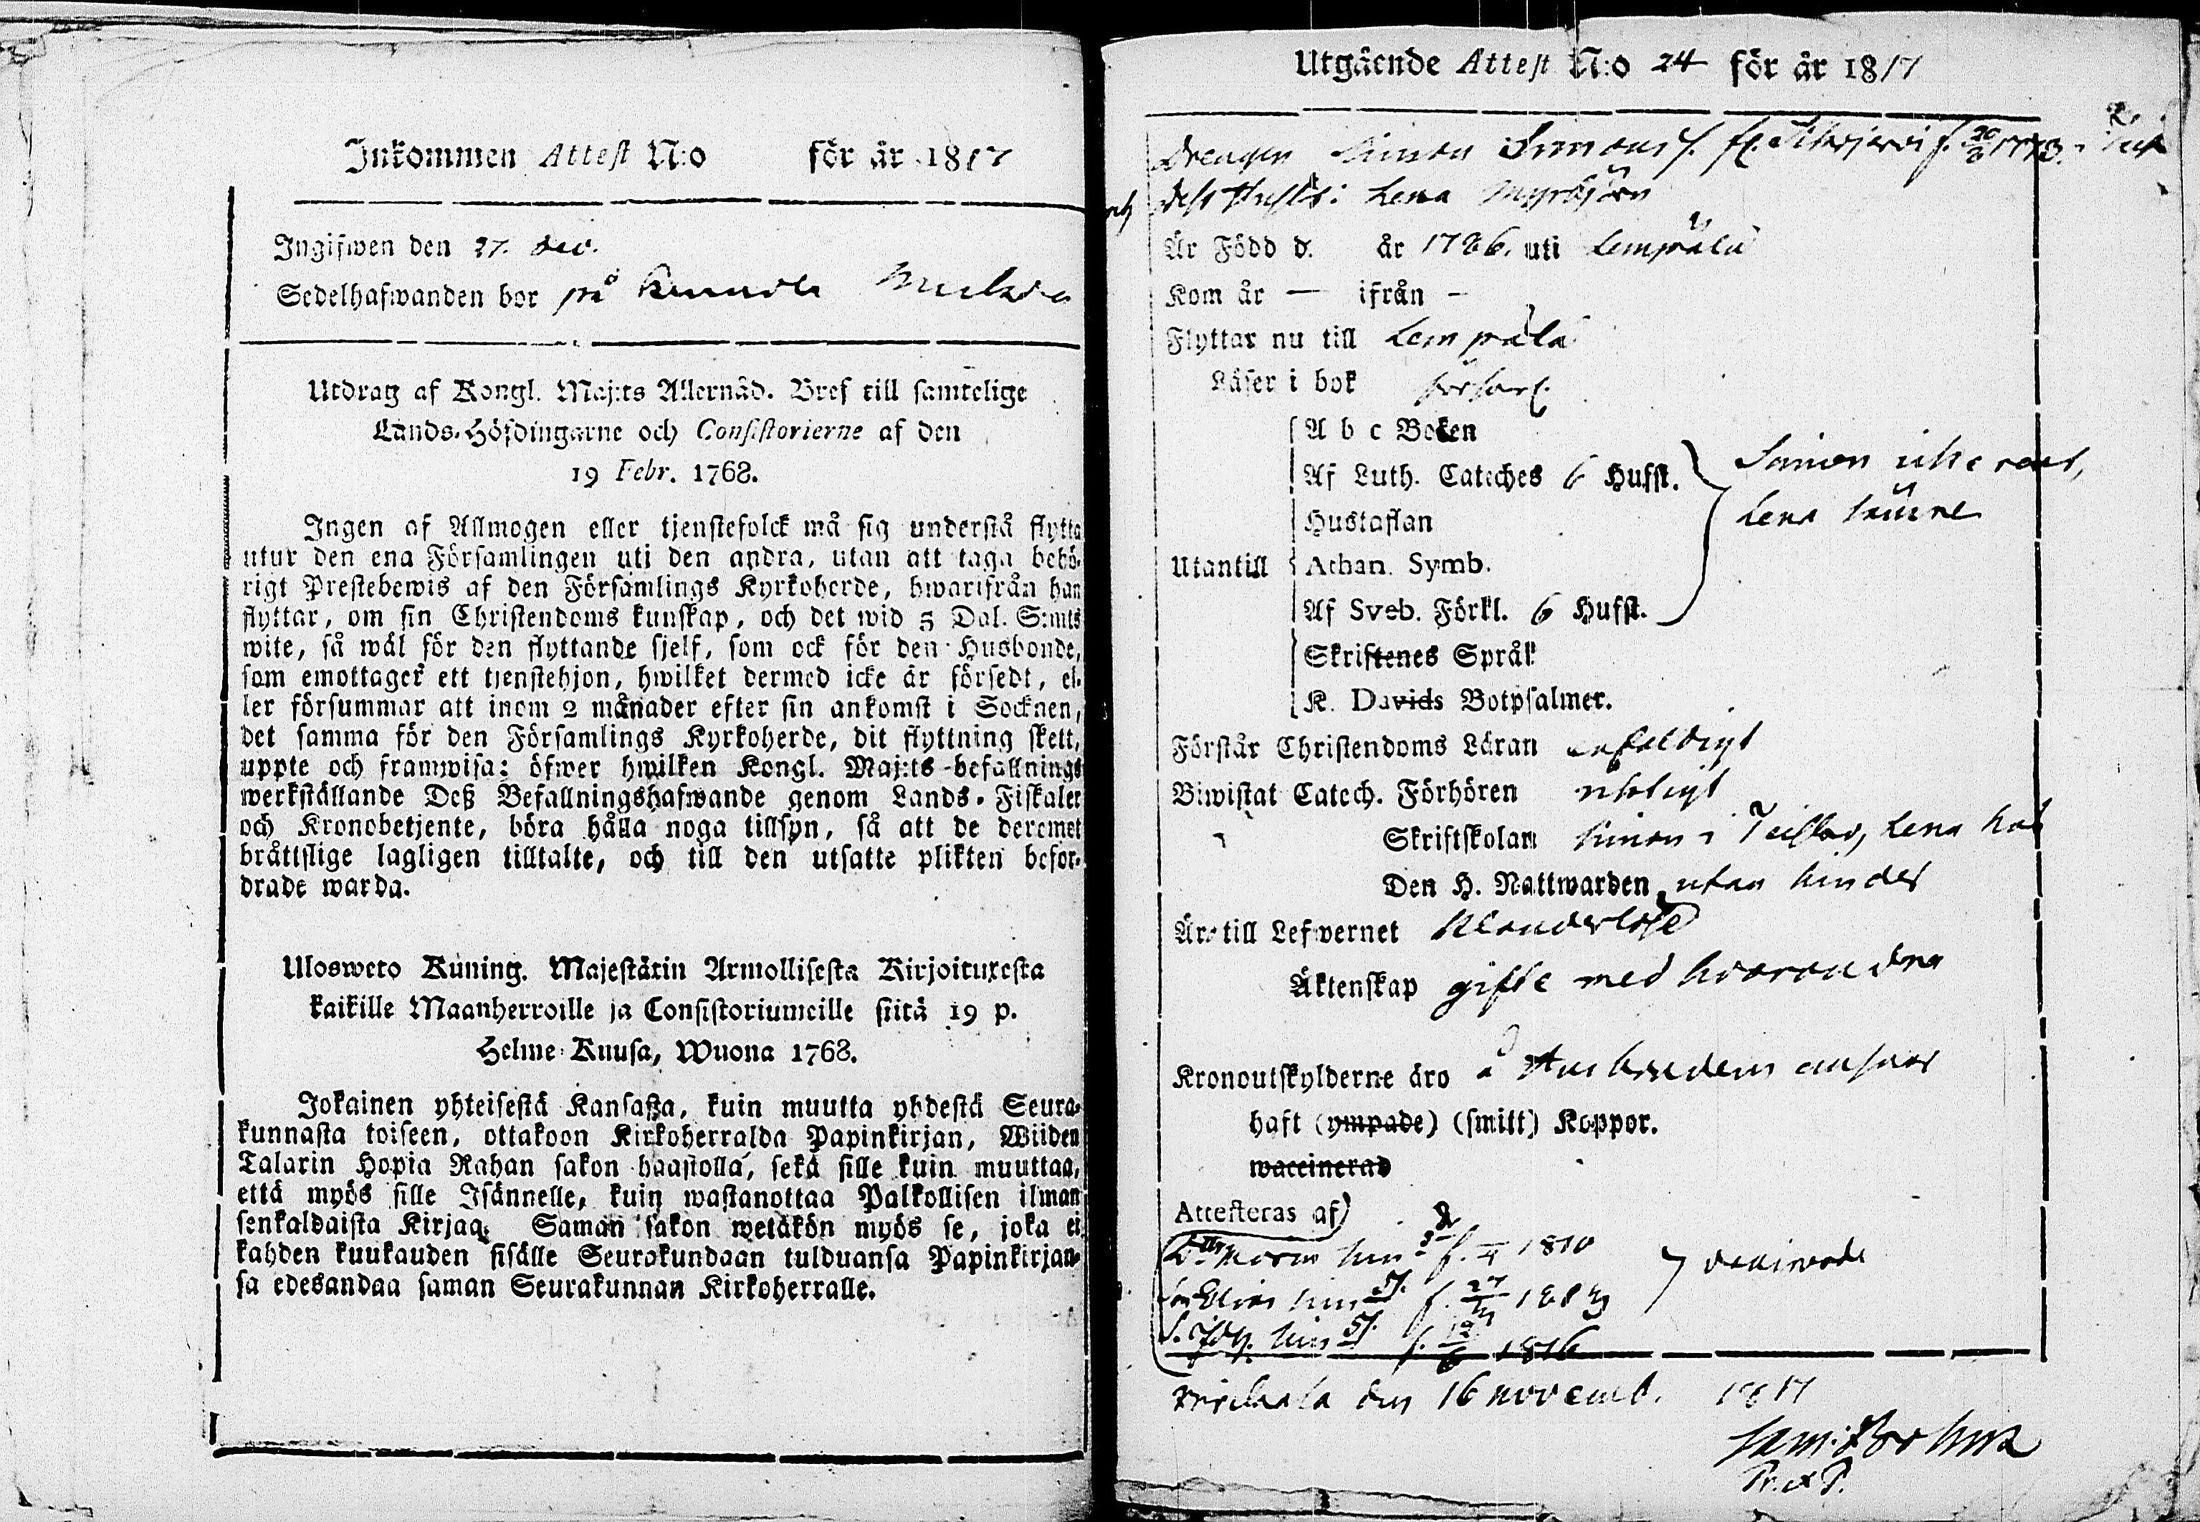 Inkommen Attest N:o för år 1817
Ingifwen den 27. Dec.
Sedelhafwanden bor på
Utdrag af Kongl. Maj:ts Allernåd. Bref till samtelige
Lands-Höfdingarne och Consistorierne af den
19 Febr. 1768.
Ingen af Allmogen eller tjenstefolck må sig understå flytta
utur den ena Församlingen uti den andra, utan att taga behö-
rigt Prestebewis af den Församlings Kyrkoherde, hwarifrån han
flyttar, om sin Christendoms kunskap, och det wid 5 Dal. S:mts
wite, så wäl för den flyttande sjelf, som ock för den Husbonde,
som emottager ett tjenstehjon, hwilket dermed icke är försedt, el-
ler försummar att inom 2 månader efter sin ankomst i Socknen,
det samma för den Församlings Kyrkoherde, dit flyttning skett,
uppte och framwisa: öfwer hwilken Kongl. Maj:ts befallnings
werkställande Deß Befallningshafwande genom Lands-Fiskaler
och Kronobetjente, böra hålla noga tillsyn, så att de deremot
bråttslige lagligen tilltalte, och till den utsatte plikten befor-
drade warda.
Ulosweto Kuning. Majestätin Armollisesta Kirjoituxesta
kaikille Maanherroille ja Consistoriumeille siitä 19 p.
Helme-Kuusa, Wuona 1768.
Jokainen yhteisestä Kansaßa, kuin muutta yhdestä Seura-
kunnasta toiseen, ottakoon Kirkoherralda Papinkirjan, Wiiden
Talarin Hopia Rahan sakon haastolla, sekä sille kuin muuttaa,
että myös sille Isännelle, kuin wastanottaa Palkollisen ilman
senkaldaista Kirjaa. Saman sakon wetäkön myös se, joka ei
kahden kuukauden sisälle Seurakundaan tulduansa Papinkirjan-
sa edesandaa saman Seurakunnan Kirkoherralle.
Utgående Attest N:o 24 för år 1817
Drengen Simon Simons s. fr. f. 1773
Lena
Är Född d. år 1786. uti Lempälä
Kom år — ifrån –
Flyttar nu till Lempälä
Läser i bok förswarl.
A b c Boken
Af Luth. Cateches 6 Hufst.
Simon icke rent,
Hustaflan
Lena
Utantill
Athan. Symb.
Af Sveb. Förkl. 6 Hufst.
Skriftenes Språk
K. Davids Botpsalmer.
Förstår Christendoms Läran enfaldigt
Biwistat Catech. Förhören richtigt
Skriftskolan Simon i Teisko, Lena här
Den H. Nattwarden utan hinder
Är till Lefwernet klanderlöse
Äktenskap gifte med hvarandra
Kronoutskylderne äro å Husbondens answar
haft (ympade) (smitt) Koppor.
waccinerad
Attesteras af
Maria Sim: f. 1810
Elias Sim: s. f. 27
S. Joh. Sim: s. f. 1816
den 16 Novemb. 1817
Sam:
Pr. & P.